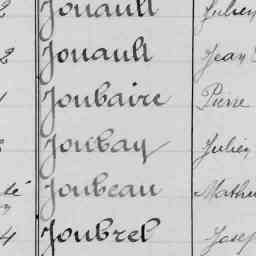 2 Jouault Julien
2 Jouault Jean
Joubaire Pierre
Joubay Julien
Joubeau Mathu
4 Joubrel Josep